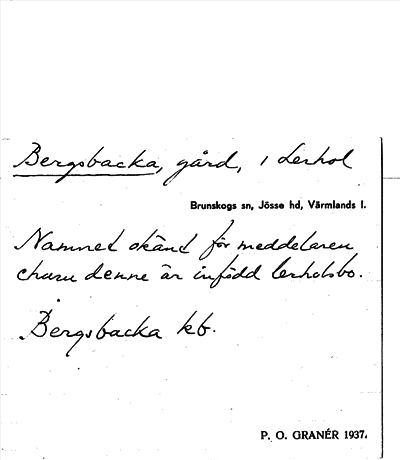 Bergsbacka, gård, i Lerhol
Brunskogs sn, Jösse hd, Värmlands l.
Namnet okänt för meddelaren
denne är infödd lerholsbo.
Bergsbacka kb.
P. O. GRANÉR 1937.